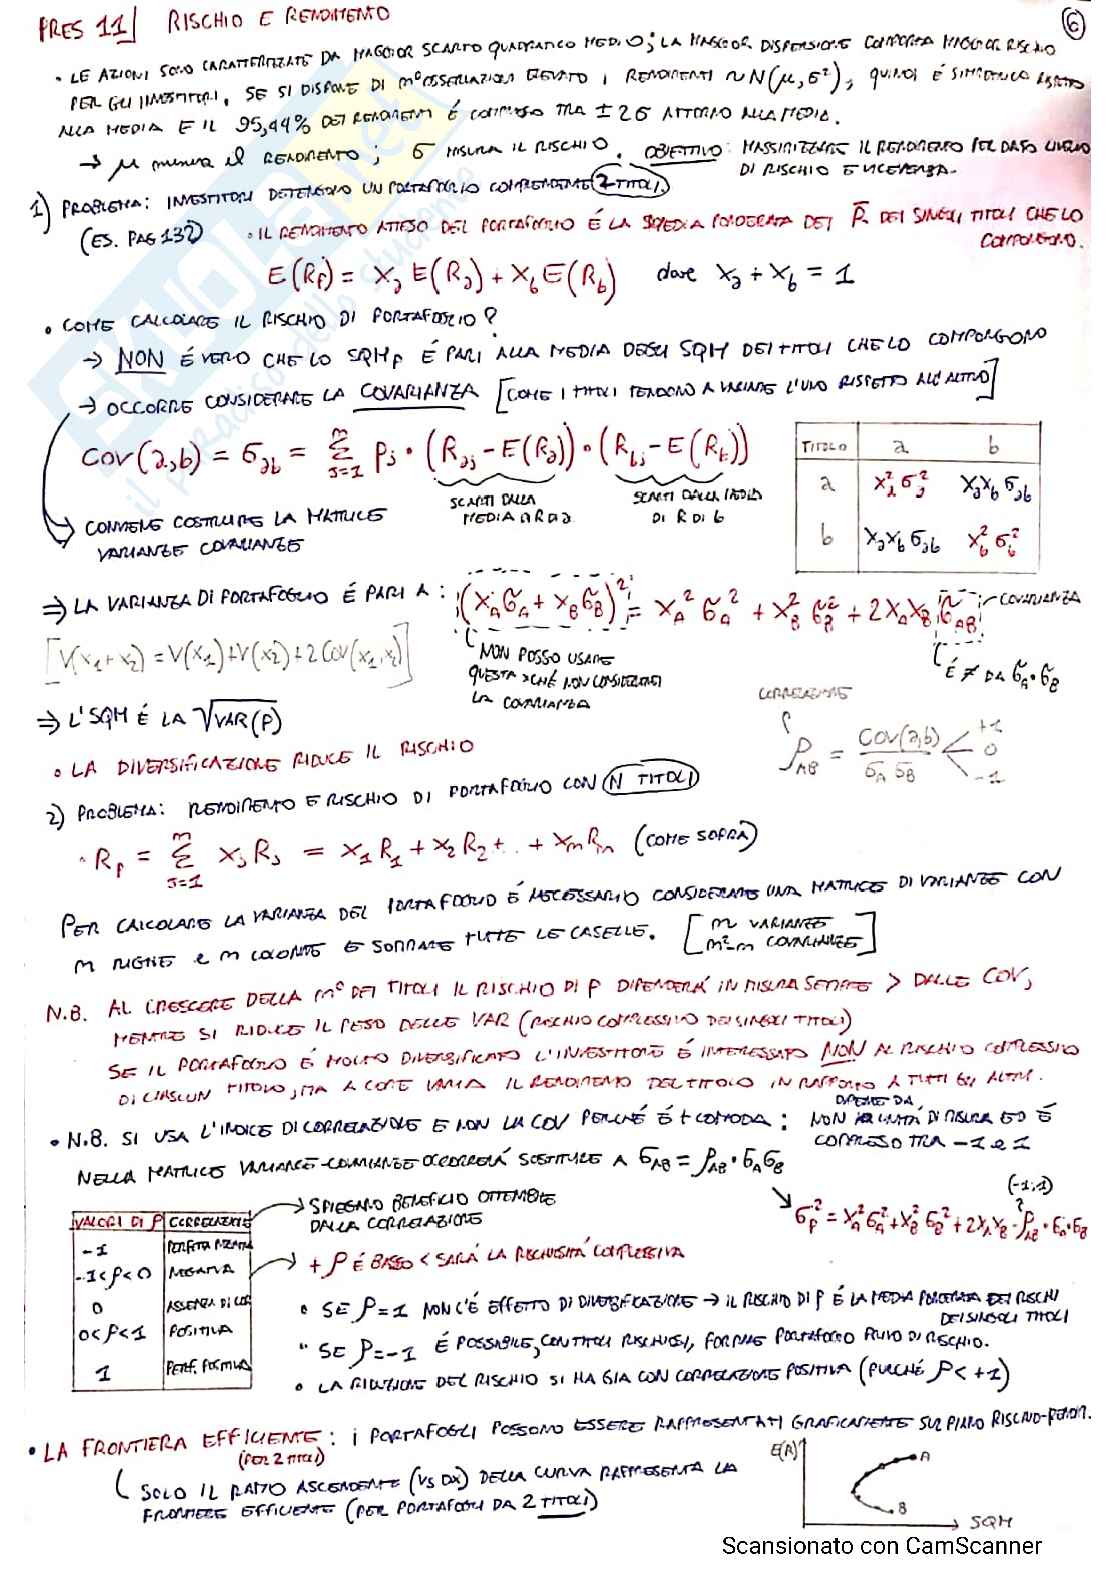 PRES 11| RISCHIO E RENDIMENTO
6
• LE AZIONI SONO CARATTERIZZATE DA MAGGIOR SCARTO QUADRATICO MEDIO; LA MAGGIOR DISPERSIONE COMPORTA MAGGIOR RISCHIO
PER GLI INVESTITORI. SE SI DISPONE DI n° OSSERVAZIONI ELEVATO I RENDIMENTI ~ N(μ, σ²), QUINDI É SIMMETRICO RISPETTO
ALLA MEDIA E IL 95,44% DEI RENDIMENTI É COMPRESO TRA ± 2σ ATTORNO ALLA MEDIA.
→ μ misura il RENDIMENTO; σ MISURA IL RISCHIO. OBIETTIVO: MASSIMIZZARE IL RENDIMENTO PER DATO LIVELLO
DI RISCHIO E VICEVERSA.
1) PROBLEMA: INVESTITORI DETENGONO UN PORTAFOGLIO COMPRENDENTE 2 TITOLI.
(ES. PAG 132) • IL RENDIMENTO ATTESO DEL PORTAFOGLIO É LA MEDIA PONDERATA DEI R̄ DEI SINGOLI TITOLI CHE LO
COMPONGONO.
E(Rp) = Xa E(Ra) + Xb E(Rb) dove Xa + Xb = 1
• COME CALCOLARE IL RISCHIO DI PORTAFOGLIO?
→ NON É VERO CHE LO SQMp É PARI ALLA MEDIA DEGLI SQM DEI TITOLI CHE LO COMPONGONO
→ OCCORRE CONSIDERARE LA COVARIANZA [COME I TITOLI TENDONO A VARIARE L'UNO RISPETTO ALL'ALTRO]
Cov(a,b) = σab = Σ (J=1, n) Pj • (Raj - E(Ra)) • (Rbj - E(Rb))
SCARTI DALLA MEDIA DI R DI a
SCARTI DALLA MEDIA DI R DI b
TITOLO a b
a Xa²σa² XaXbσab
b XaXbσab Xb²σb²
→ CONVIENE COSTRUIRE LA MATRICE
VARIANZE COVARIANZE
⇒ LA VARIANZA DI PORTAFOGLIO É PARI A: (XAσA + XBσB)² = XA²σA² + XB²σB² + 2XAXBσAB COVARIANZA
[V(X1+X2) = V(X1)+V(X2)+2COV(X1,X2)]
NON POSSO USARE
QUESTA XCHÉ NON CONSIDEREREI
LA COVARIANZA
É ≠ DA σA•σB
⇒ L'SQM É LA √VAR(P)
CORRELAZIONE
ρAB = COV(a,b) / σA σB < +1 0 -1
• LA DIVERSIFICAZIONE RIDUCE IL RISCHIO
2) PROBLEMA: RENDIMENTO E RISCHIO DI PORTAFOGLIO CON N TITOLI
• Rp = Σ (J=1, n) XJRJ = X1R1 + X2R2 + .. + XnRn (COME SOPRA)
PER CALCOLARE LA VARIANZA DEL PORTAFOGLIO É NECESSARIO CONSIDERARE UNA MATRICE DI VARIANZE CON
n RIGHE e n COLONNE E SOMMARE TUTTE LE CASELLE. [n VARIANZE n²-n COVARIANZE]
N.B. AL CRESCERE DELLA n° DEI TITOLI IL RISCHIO DI P DIPENDERÁ IN MISURA SEMPRE > DALLE COV,
MENTRE SI RIDUCE IL PESO DELLE VAR (RISCHIO COMPLESSIVO DEI SINGOLI TITOLI)
SE IL PORTAFOGLIO É MOLTO DIVERSIFICATO L'INVESTITORE É INTERESSATO NON AL RISCHIO COMPLESSIVO
DI CIASCUN TITOLO, MA A COME VARIA IL RENDIMENTO DEL TITOLO IN RAPPORTO A TUTTI GLI ALTRI.
• N.B. SI USA L'INDICE DI CORRELAZIONE E NON LA COV PERCHÉ É + COMODA: NON DIPENDE DA UNITÁ DI MISURA ED É
COMPRESO TRA -1 e 1
NELLA MATRICE VARIANZE-COVARIANZE OCCORRERÁ SOSTITUIRE A σAB = ρAB • σAσB
(-1;1)
σp² = XA²σA² + XB²σB² + 2XAXB • ρAB • σA•σB
VALORI DI ρ CORRELAZIONE
-1 PERFETTA NEGATIVA
-1<ρ<0 NEGATIVA
0 ASSENZA DI COR
0<ρ<1 POSITIVA
1 PERF. POSITIVA
→ SPIEGANO BENEFICIO OTTENIBILE
DALLA CORRELAZIONE
→ + ρ É BASSO < SARÁ LA RISCHIOSITÁ COMPLESSIVA
• SE ρ=1 NON C'É EFFETTO DI DIVERSIFICAZIONE → IL RISCHIO DI P É LA MEDIA PONDERATA DEI RISCHI
DEI SINGOLI TITOLI
• SE ρ=-1 É POSSIBILE, CON TITOLI RISCHIOSI, FORMARE PORTAFOGLIO PRIVO DI RISCHIO.
• LA RIDUZIONE DEL RISCHIO SI HA GIA CON CORRELAZIONE POSITIVA (PURCHÉ ρ < +1)
• LA FRONTIERA EFFICIENTE: i PORTAFOGLI POSSONO ESSERE RAPPRESENTATI GRAFICAMENTE SUL PIANO RISCHIO-RENDIM.
(PER 2 TITOLI)
SOLO IL RAMO ASCENDENTE (VS DX) DELLA CURVA RAPPRESENTA LA
FRONTIERE EFFICIENTE (PER PORTAFOGLI DA 2 TITOLI)
E(R)
A
B
SQM
Scansionato con CamScanner